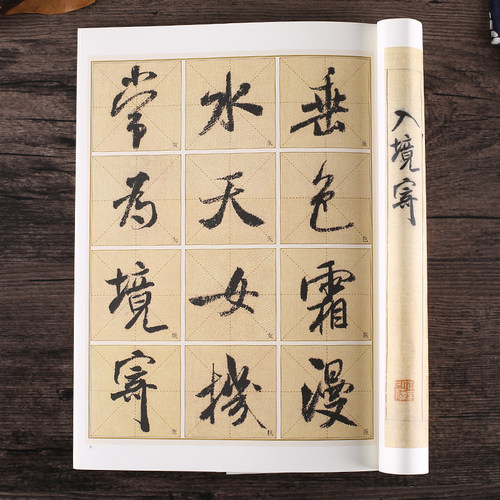 垂色霜漫
水天女機
常為境寄
入境寄